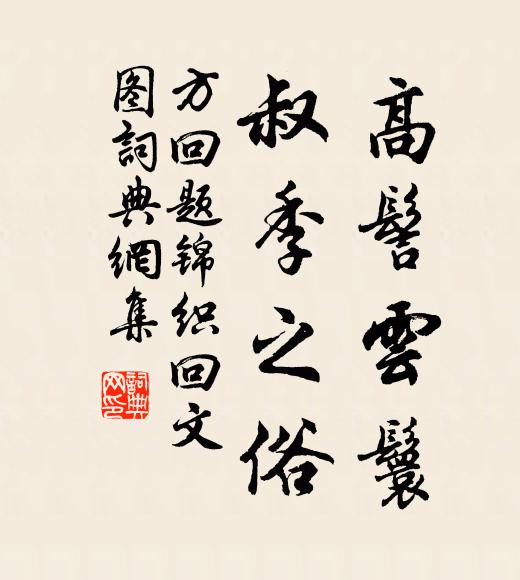 高髻雲鬟
叔季之俗
方回题锦织回文
图詞典網集
詞典网印